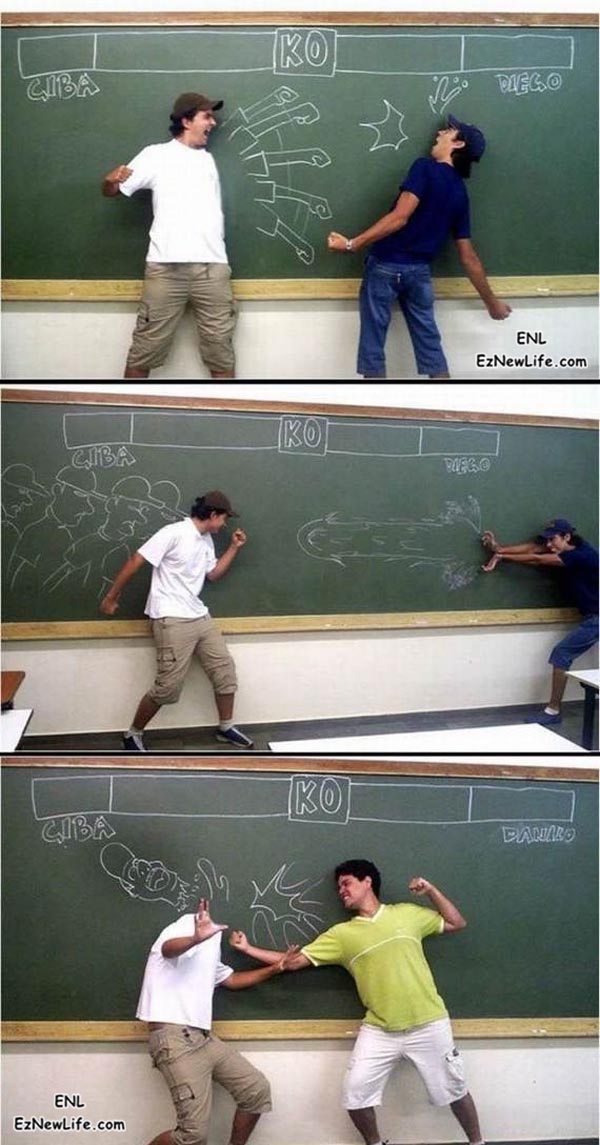 KO
GIBA
DIEGO
ENL
EzNewLife.com
KO
GIBA
DIEGO
KO
GIBA
DANILO
ENL
EzNewLife.com